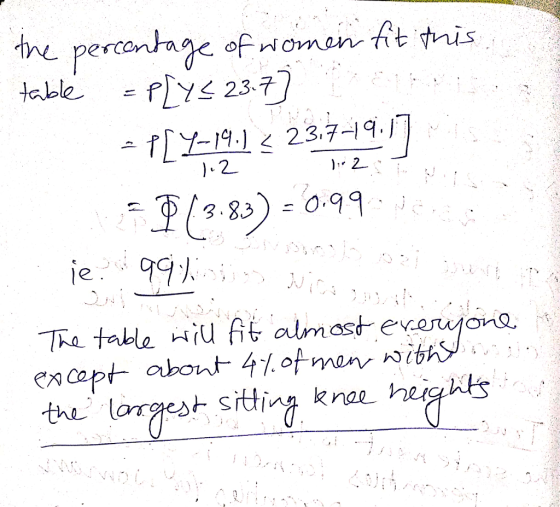 the percentage of women fit this
table = P[Y ≤ 23.7]
= P[Y-19.1/1.2 ≤ 23.7-19.1/1.2]
= Φ(3.83) = 0.99
ie. 99%
The table will fit almost everyone
except about 4% of men with
the largest sitting knee heights